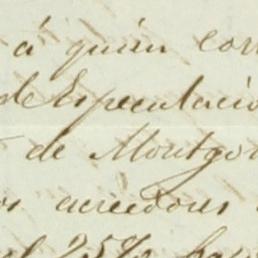 á quien cor
de Especulacio
de Montgo
os acreedores
el 25% par